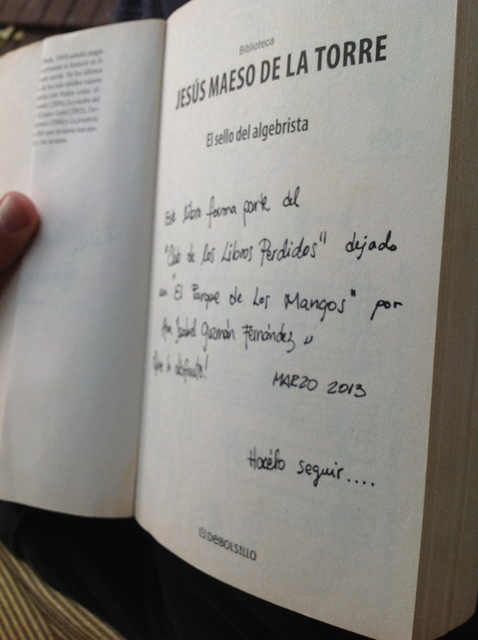 Biblioteca
JESÚS MAESO DE LA TORRE
El sello del algebrista
Este libro forma parte del
"Club de los Libros Perdidos" dejado
en "El Parque de Los Mangos" por
Ana Isabel Guzmán Fernández
Que lo disfrute!
MARZO 2013
Hacélo seguir....
DEBOLSILLO